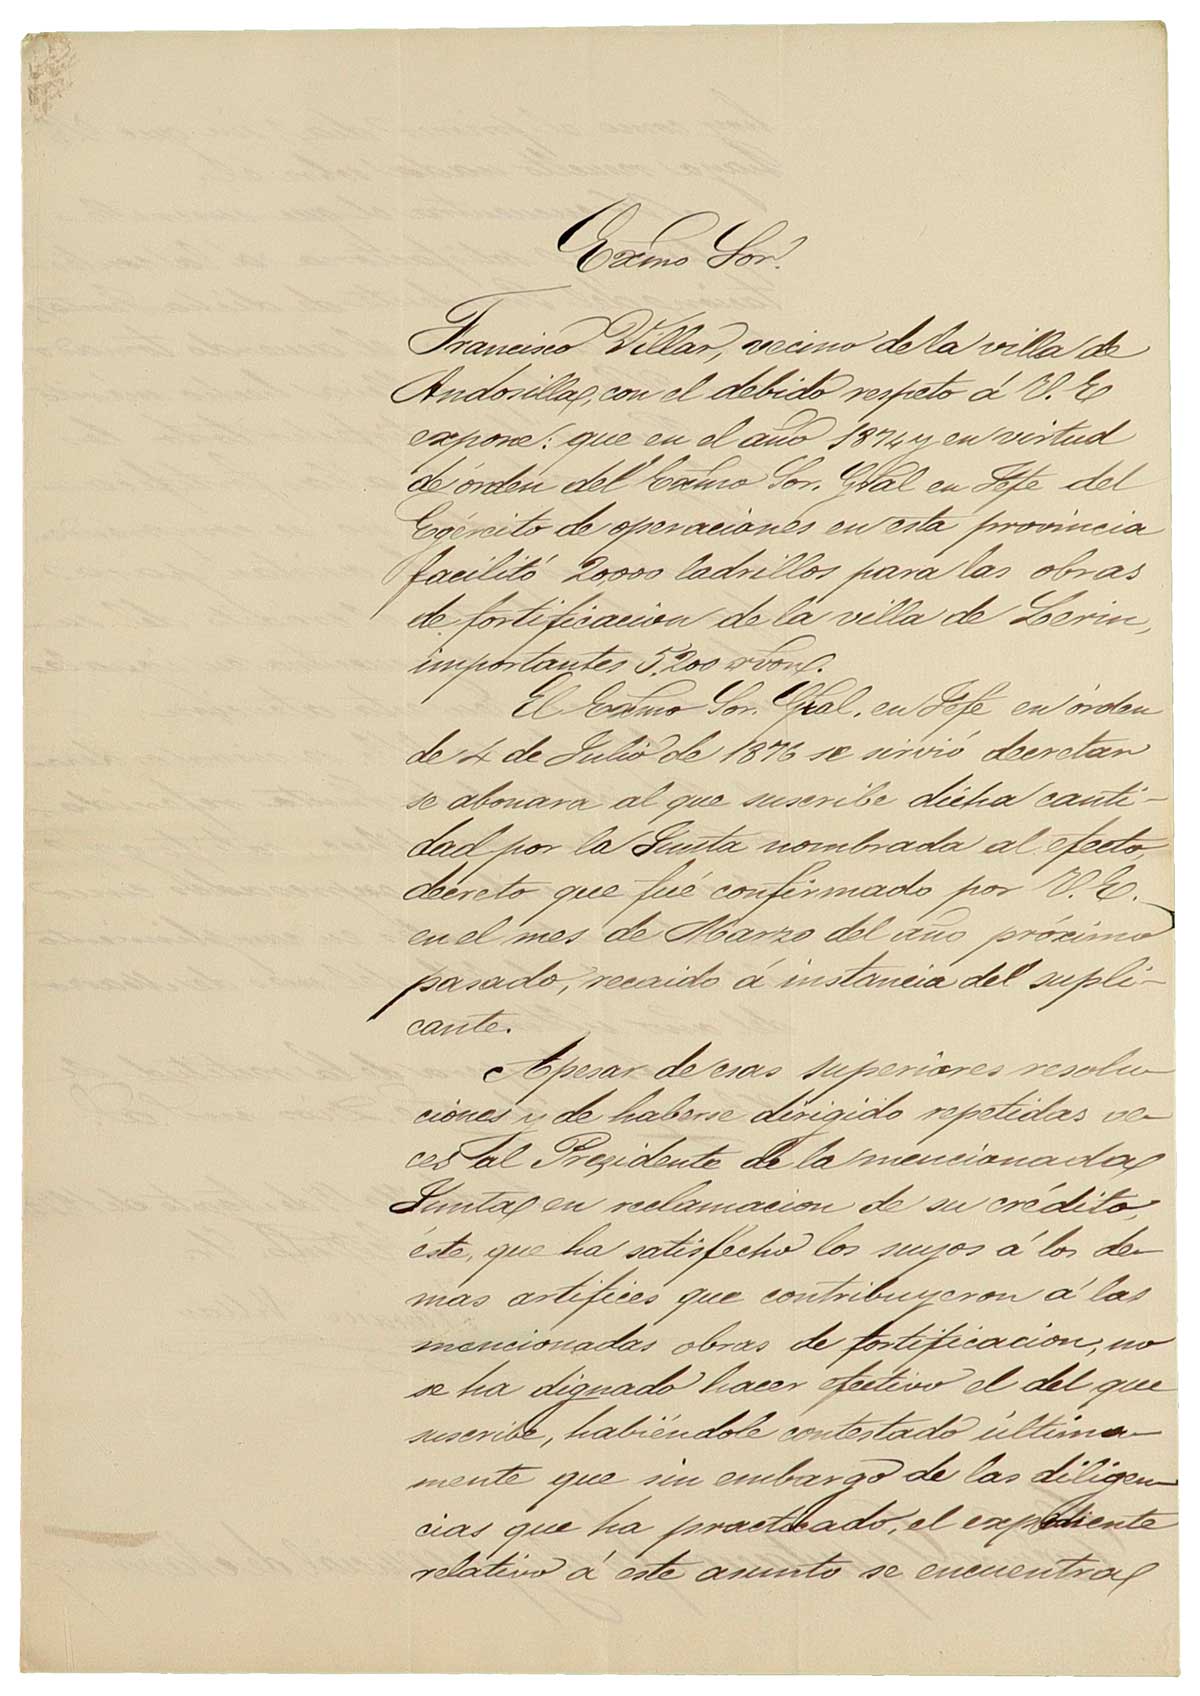 Exmo Sor.
Francisco Villar, vecino de la villa de
Andosilla, con el debido respeto á V. E
expone: que en el año 1874 y en virtud
de órden del Exmo Sor. Gral en Jefe del
Egército de operaciones en esta provincia
facilitó 20,000 ladrillos para las obras
de fortificacion de la villa de Lerin,
importantes 5.200 rvon.
El Exmo Sor. Gral. en Jefe en órden
de 4 de Julio de 1876 se sirvió decretar
se abonara al que suscribe dicha canti-
dad por la Junta nombrada al efecto,
decreto que fué confirmado por V. E.
en el mes de Marzo del año próximo
pasado, recaido á instancia del supli-
cante.
Apesar de esas superiores resolu-
ciones y de haberse dirigido repetidas ve-
ces al Presidente de la mencionada
Junta en reclamacion de su crédito,
éste, que ha satisfecho los suyos á los de-
mas artífices que contribuyeron á las
mencionadas obras de fortificacion, no
se ha dignado hacer efectivo el del que
suscribe, habiéndole contestado última-
mente que sin embargo de las diligen-
cias que ha practicado, el expediente
relativo á este asunto se encuentra